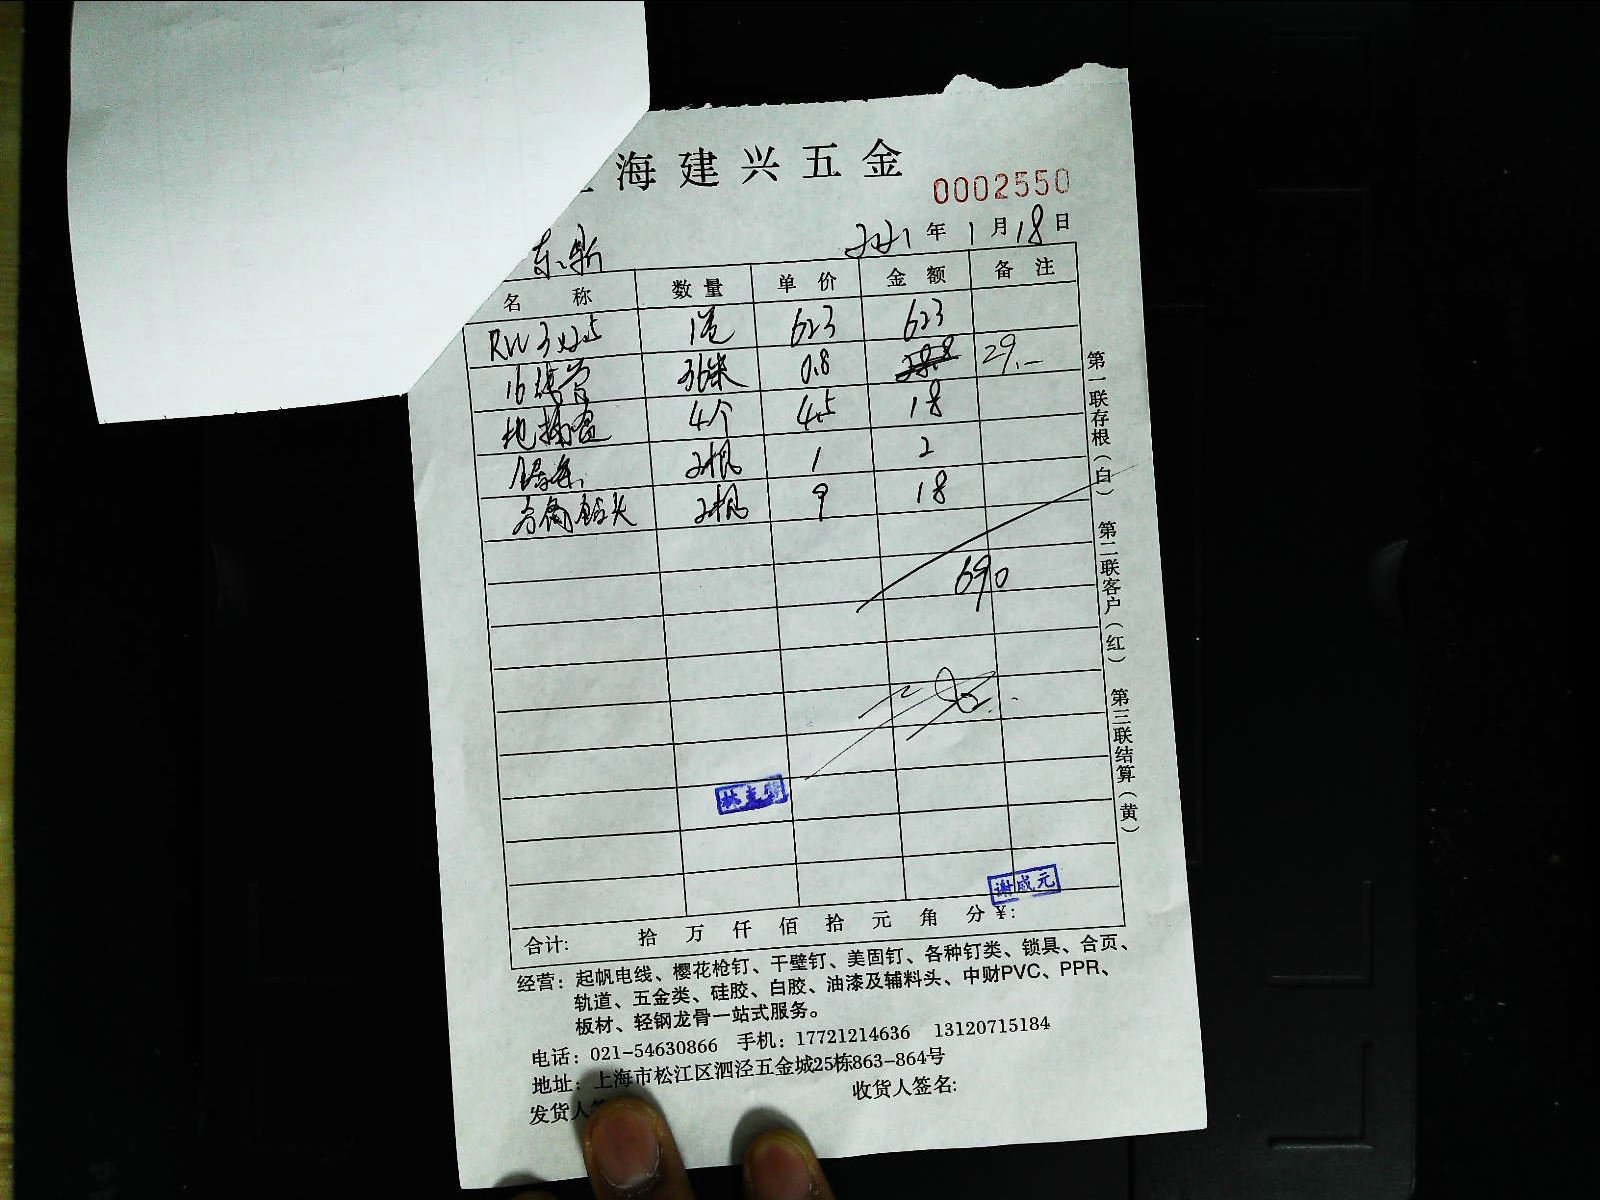 海建兴五金
0002550
2021年1月18日
名称 数量 单价 金额 备注
RVV 3x2.5 1卷 623 623
16线管 36米 0.8 29.-
地插盒 4个 4.5 18
2根 1 2
方角钻头 2根 9 18
690
林
谢成元
合计: 拾 万 仟 佰 拾 元 角 分 ¥:
第一联存根(白) 第二联客户(红) 第三联结算(黄)
经营: 起帆电线、樱花枪钉、干壁钉、美固钉、各种钉类、锁具、合页、
轨道、五金类、硅胶、白胶、油漆及辅料头、中财PVC、PPR、
板材、轻钢龙骨一站式服务。
电话: 021-54630866 手机: 17721214636 13120715184
地址: 上海市松江区泗泾五金城25栋863-864号
发货人 收货人签名: